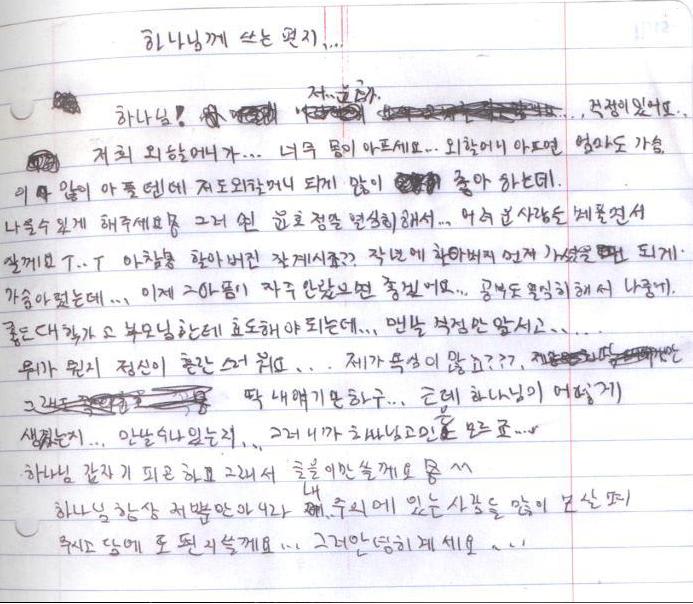 하나님께 쓰는 편지....
저..윤호가.
하나님! ...., 걱정이있어요..
저희 외할머니가... 너무 몸이 아프세요... 외할머니 아프면 엄마도 가슴
이 많이 아플텐데 저도외할머니 되게 많이 좋아 하는데.
나을수있게 해주세요 그러 윤호 정말 열심히해서... 어려운사람들 베풀면서
살께요 T..T 아참 할아버진 잘계시죠?? 작년에 할아버지 먼저 가셨을 되게.
가슴아펐는데..., 이제 그아픔이 자주 안왔으면 좋겠어요... 공부도 열심히해서 나중에.
좋은대학가고 부모님한테 효도해야되는데..., 맨날 걱정만 앞서고......
뭐가 뭔지 정신이 혼란 스러워요.... 제가 욕심이 많죠???,
딱 내얘기만하구... 근데 하나님이 어떻게
생겼는지... 만날수나있는지... 그러니까 하나님고민을 모르죠....
하나님 갑자기 피곤하죠 그래서 글을이만쓸께요 ^^
하나님 항상 저뿐만아니라 내 주위에 있는사람들 많이 보살펴
주시고 담에 또 편지쓸께요... 그럼안녕히계세요....